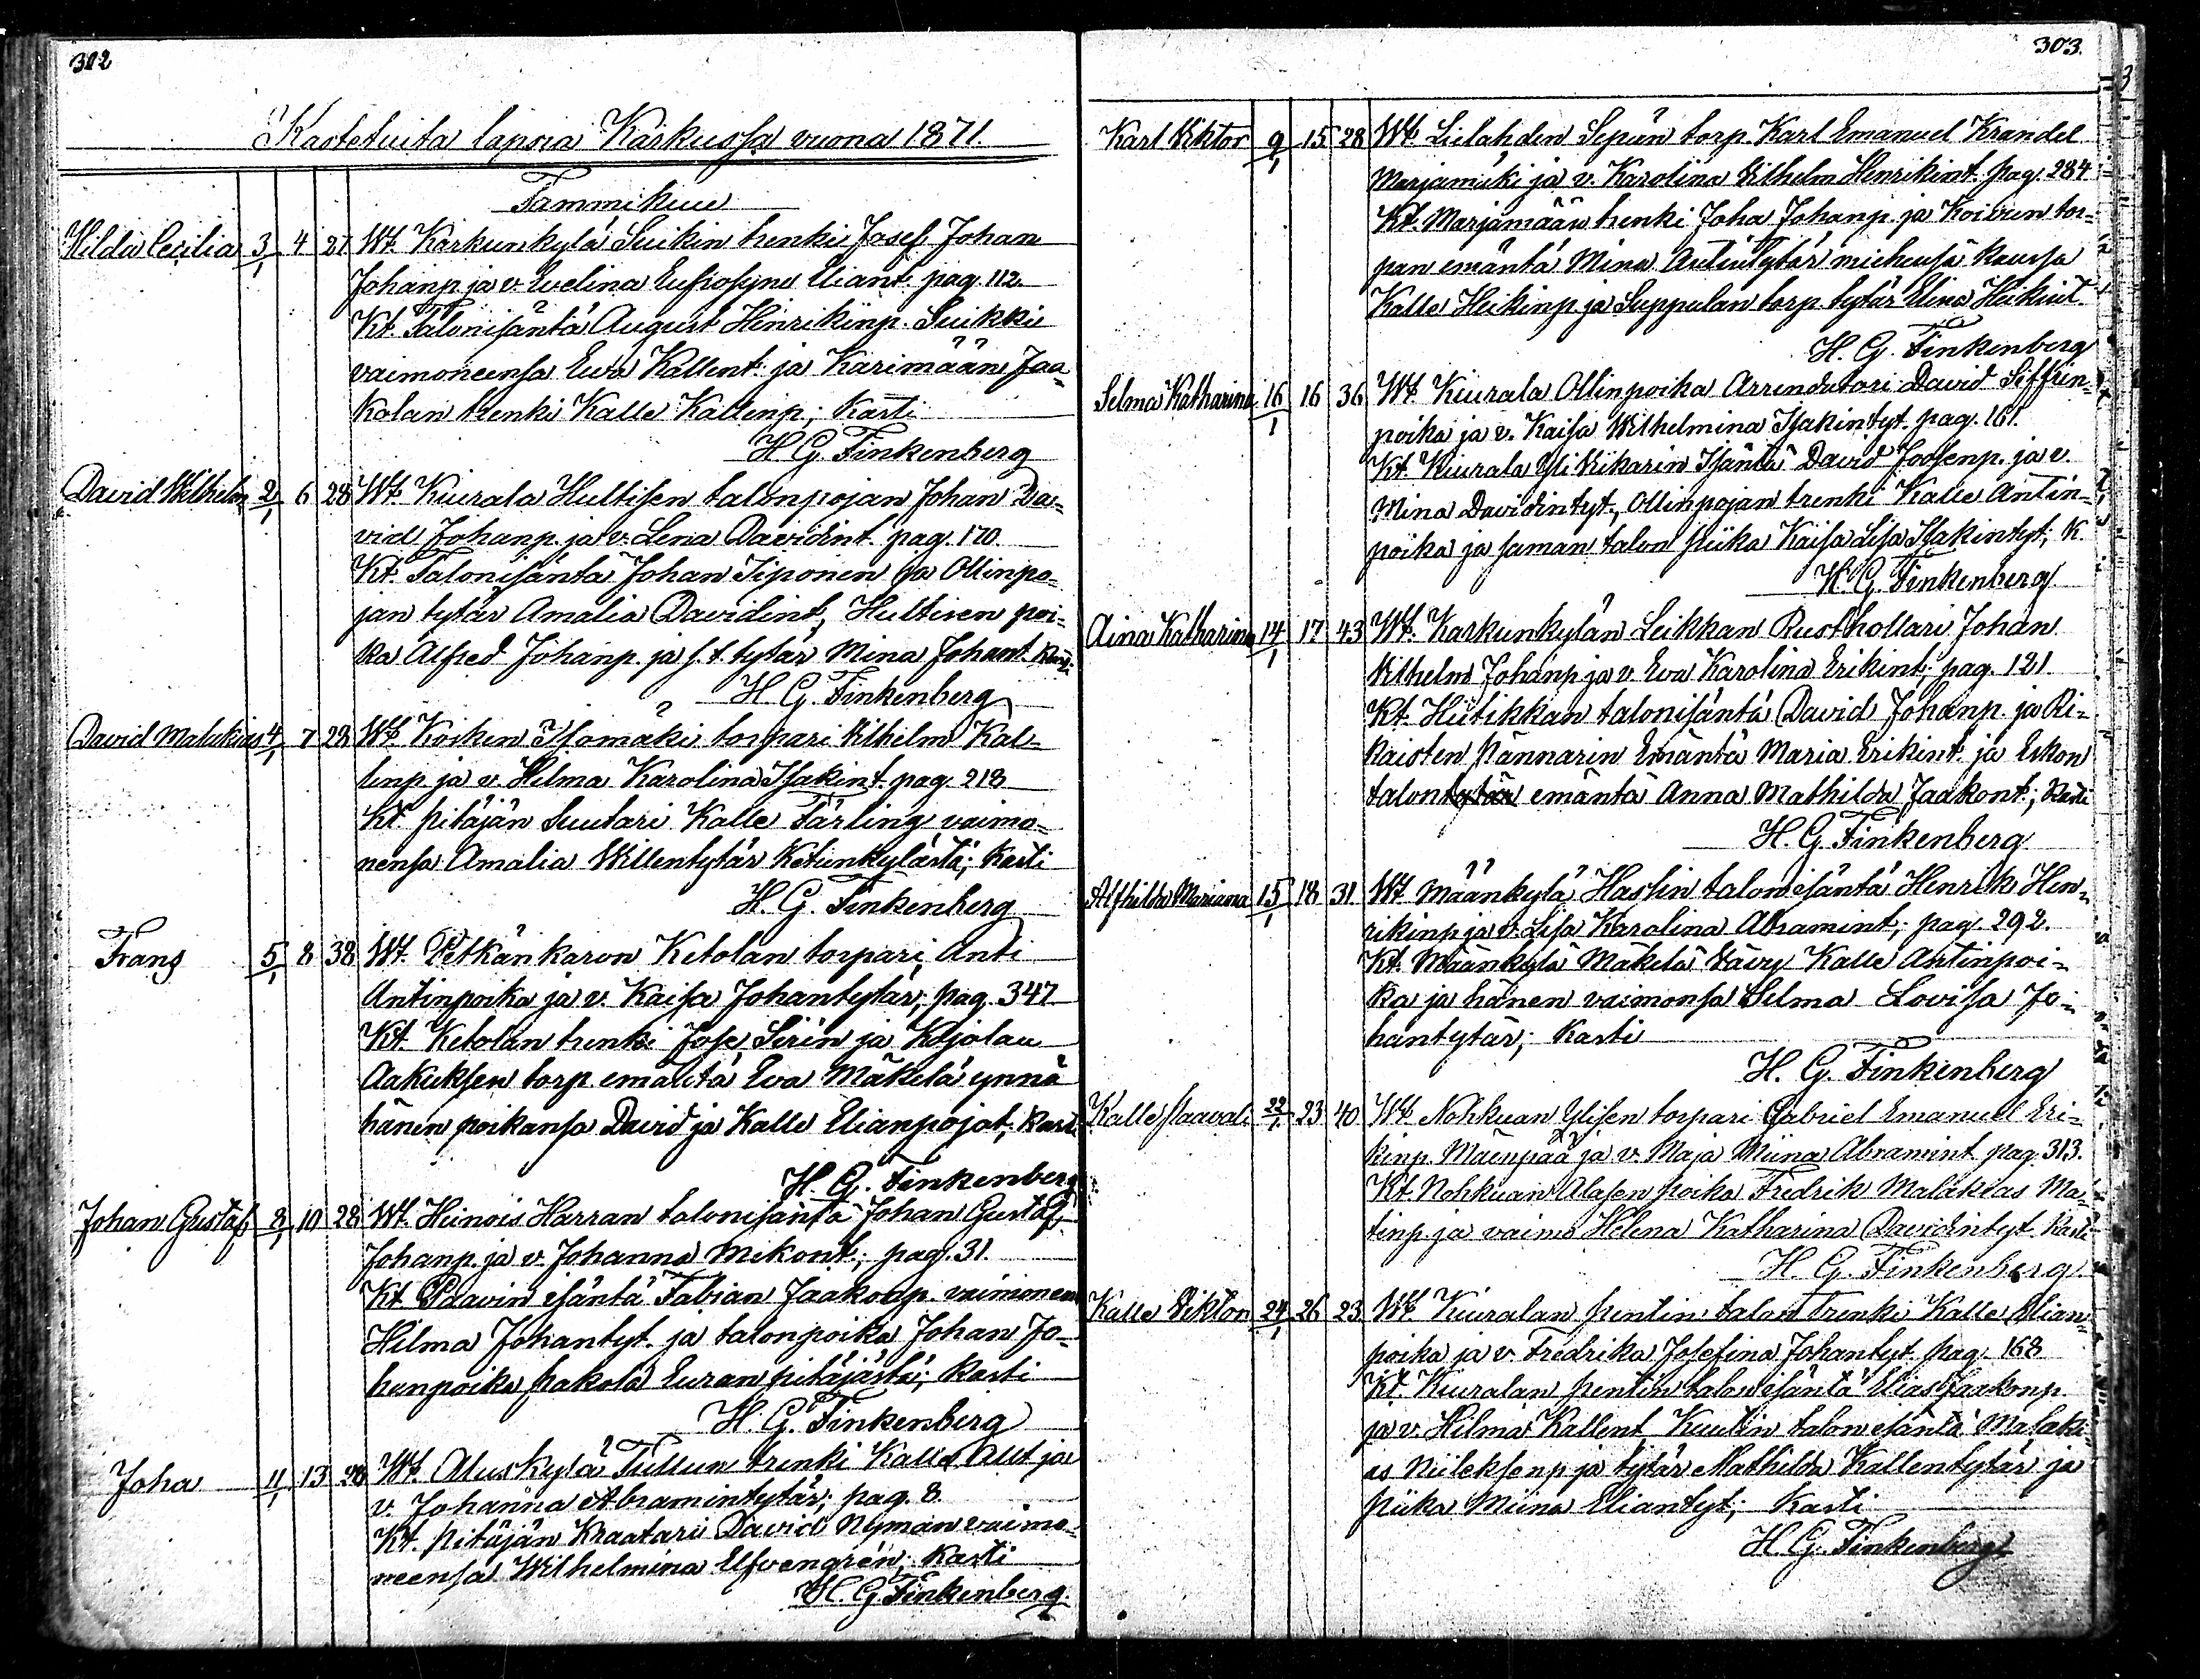 302
Kastetuita lapsia Karkussa vuona 1871.
Tammikuu
Hilda Cecilia 3/1 4 27 Wt. Karkunkylä Suikin trenki Josef Johan
Johanp. ja v. Evelina Eufrosyne Eliant. pag. 112.
Kt. Talonisäntä August Henrikinp. Suikki
vaimoneensa Ewa Kallent. ja Karimään Jaa-
kolan trenki Kalle Kallenp.; Kasti
H. G. Finkenberg
David Wilhelm 2/1 6 28 Wt. Kiurala Hultisen talonpojan Johan Da-
vid Johanp. ja v. Lena Davidint. pag. 170.
Kt. Talonisäntä Johan Siponen ja Ollinpo-
jan tytär Amalia Davidint., Hultisen poi-
ka Alfred Johanp. ja s. t. tytär Mina Johant. Kasti
H. G. Finkenberg
David Malakias 4/1 7 28 Wt. Kosken Isomäki torpari Vilhelm Kal-
lenp. ja v. Hilma Karolina Isakint. pag. 218
Kt. pitäjän Suutari Kalle Färling vaimo-
nensa Amalia Willentytär Ketunkylästä; Kasti
H. G. Finkenberg
Frans 5/1 8 38 Wt. Petkänkaron Ketolan torpari Anti
Antinpoika ja v. Kaisa Johantytär; pag. 347
Kt. Ketolan trenki Jose Sirin ja Kojolan
Aakuksen torp. emäntä Eva Mäkelä ynnä
hänen poikansa David ja Kalle Elianpojat; Kasti
H. G. Finkenberg
Johan Gustaf 8/1 10 28 Wt. Heinois Harran talonisäntä Johan Gustaf
Johanp. ja v. Johanna Mikont.; pag. 31.
Kt. Paavin isäntä Fabian Jaakonp. vaimonen
Hilma Johantyt. ja talonpoika Johan Jo-
hanpoika Pakola Euran pitäjästä; Kasti
H. G. Finkenberg
Joha 11/1 13 Wt. Aluskylä Tullun trenki Kalle Allt ja
v. Johanna Abramintytär; pag. 8.
Kt. pitäjän Kraatari David Nyman vaimo-
neensa Wilhelmina Elfvengrén; Kasti
H. G. Finkenberg.
303.
Karl Viktor 9/1 15 28 Wt. Lielahden Sepän torp. Karl Emanuel Krandel
Marjamäki ja v. Karolina Vilhelm Henrikint. pag. 284
Kt. Marjamään trenki Joha Johanp. ja Koivun tor-
pan emäntä Mina Antintytär miehensä kanssa
Kalle Heikinp. ja Suppulan torp. tytär Elina Heikint.
H. G. Finkenberg
Selma Katharina 16/1 16 36 Wt. Kiurala Ollinpoika Arrendatori David Siffrin-
poika ja v. Kaisa Wilhelmina Isakintyt. pag. 161.
Kt. Kiurala Yli Vikarin Isäntä David Joosenp. ja v.
Mina Davidintyt., Ollinpojan trenki Kalle Antin-
poika ja saman talon piika Kaisa Lisa Isakintyt.; K
H. G. Finkenberg
Aina Katharina 14/1 17 43 Wt. Karkunkylän Leikkan Rusthollari Johan
Vilhelm Johanp. ja v. Eva Karolina Erikint; pag. 121.
Kt. Hiitikkan talonisäntä David Johanp. ja Ri-
kaisten Pännarin Emäntä Maria Erikint. ja Eskon
talontytär emäntä Anna Mathilda Jaakont.; Kasti
H. G. Finkenberg
Alfhilda Mariana 15/1 18 31 Wt. Määnkylä Haslin talonisäntä Henrik Hen-
rikinp. ja v. Lisa Karolina Abramint; pag. 292.
Kt. Määnkylä Mäkelä Vävy Kalle Antinpoi-
ka ja hänen vaimonsa Selma Lovisa Jo-
hantytär; Kasti
H. G. Finkenberg
Kalle Paavali 22/1 23 40 Wt. Nohkuan Ylisen torpari Gabriel Emanuel Eri-
kinp. Mäenpää ja v. Maja Miina Abramint. pag. 313.
Kt. Nohkuan Alasen poika Fredrik Malakias Ma-
tinp. ja vaimo Helena Katharina Davidintyt. Kasti
H. G. Finkenberg.
Kalle Viktor 24/1 26 23 Wt. Kiuralan Pentin talon trenki Kalle Elian-
poika ja v. Fredrika Josefina Johantyt. pag. 168
Kt. Kiuralan Pentin talon isäntä Elias Jaakonp.
ja v. Hilma Kallent. Kuutin talon isäntä Malaki-
as Niileksenp. ja tytär Mathilda Kallentytär ja
piika Miina Eliantyt; Kasti
H. G. Finkenberg